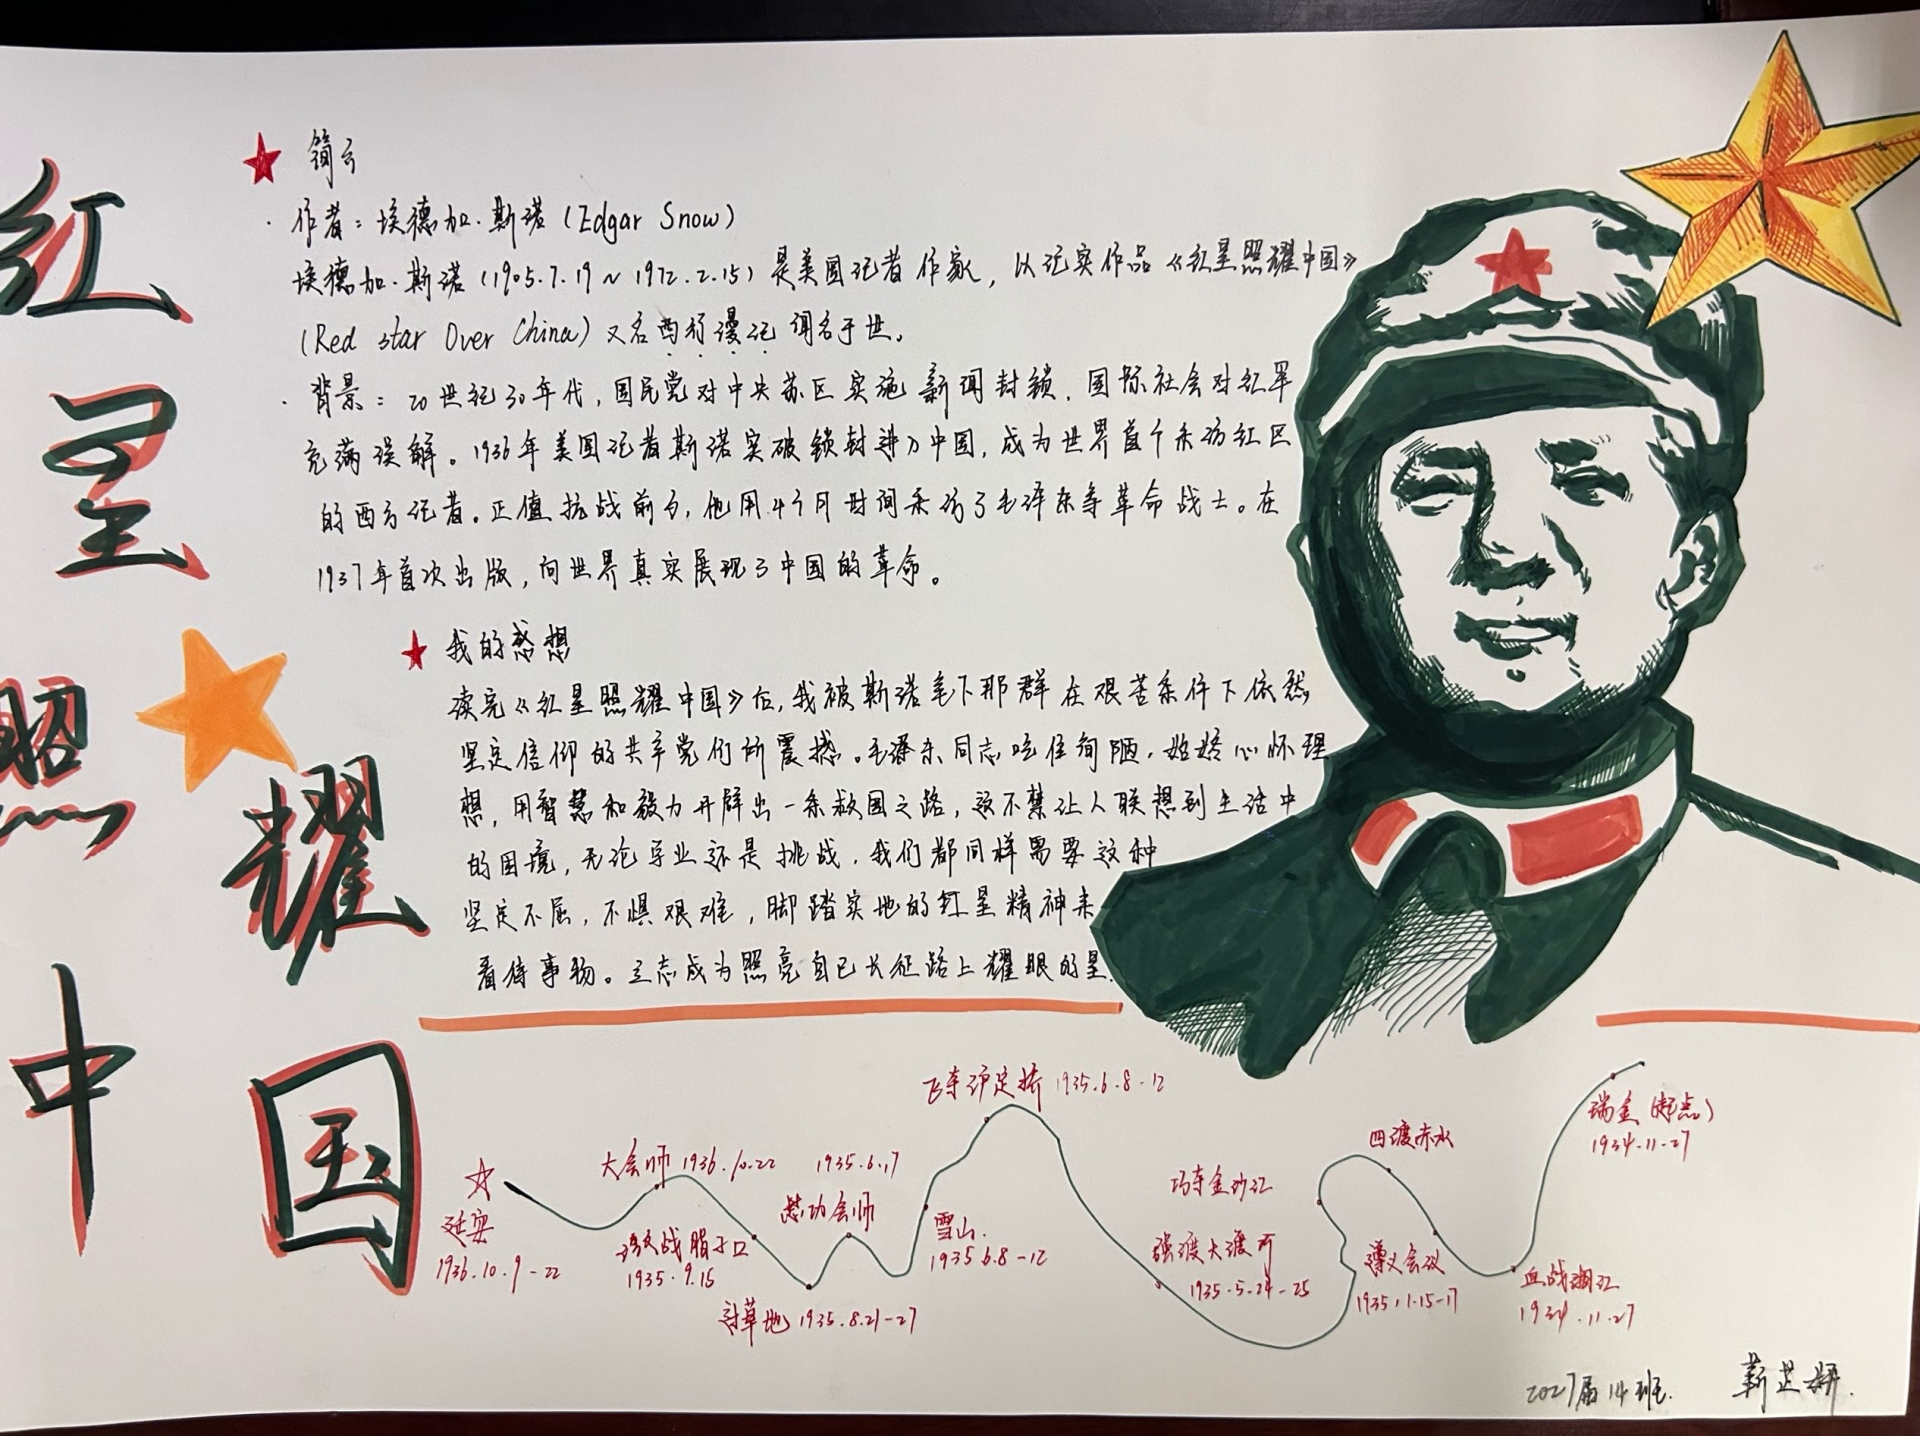 红星照耀中国
简介
·作者:埃德加·斯诺(Edgar Snow)
埃德加·斯诺(1905.7.19~1972.2.15)是美国记者作家,以记实作品《红星照耀中国》
(Red star Over China)又名西行漫记闻名于世。
·背景:20世纪30年代,国民党对中央苏区实施新闻封锁,国际社会对红军
充满误解。1936年美国记者斯诺突破锁封进入中国,成为世界首个采访红区
的西方记者。正值抗战前夕,他用4个月时间采访了毛泽东等革命战士。在
1937年首次出版,向世界真实展现了中国的革命。
我的感想
读完《红星照耀中国》后,我被斯诺笔下那群在艰苦条件下依然
坚定信仰的共产党们所震撼。毛泽东同志吃住简陋,始终心怀理
想,用智慧和毅力开辟出一条救国之路,这不禁让人联想到生活中
的困境,无论学业还是挑战,我们都同样需要这种
坚定不屈,不惧艰难,脚踏实地的红星精神来
看待事物。立志成为照亮自己长征路上耀眼的星.
飞夺泸定桥 1935.6.8-12
瑞金(起点)
1934-11-27
四渡赤水
大会师 1936.10.22
1935.6.17
懋功会师
巧夺金沙江
延安
1936.10.9-22
激战腊子口
1935.9.15
雪山.
1935.6.8-12
强渡大渡河
1935-5-24-25
遵义会议
1935.1.15-17
血战湘江
1934.11.27
过草地 1935.8.21-27
2027届14班. 靳芷妍.